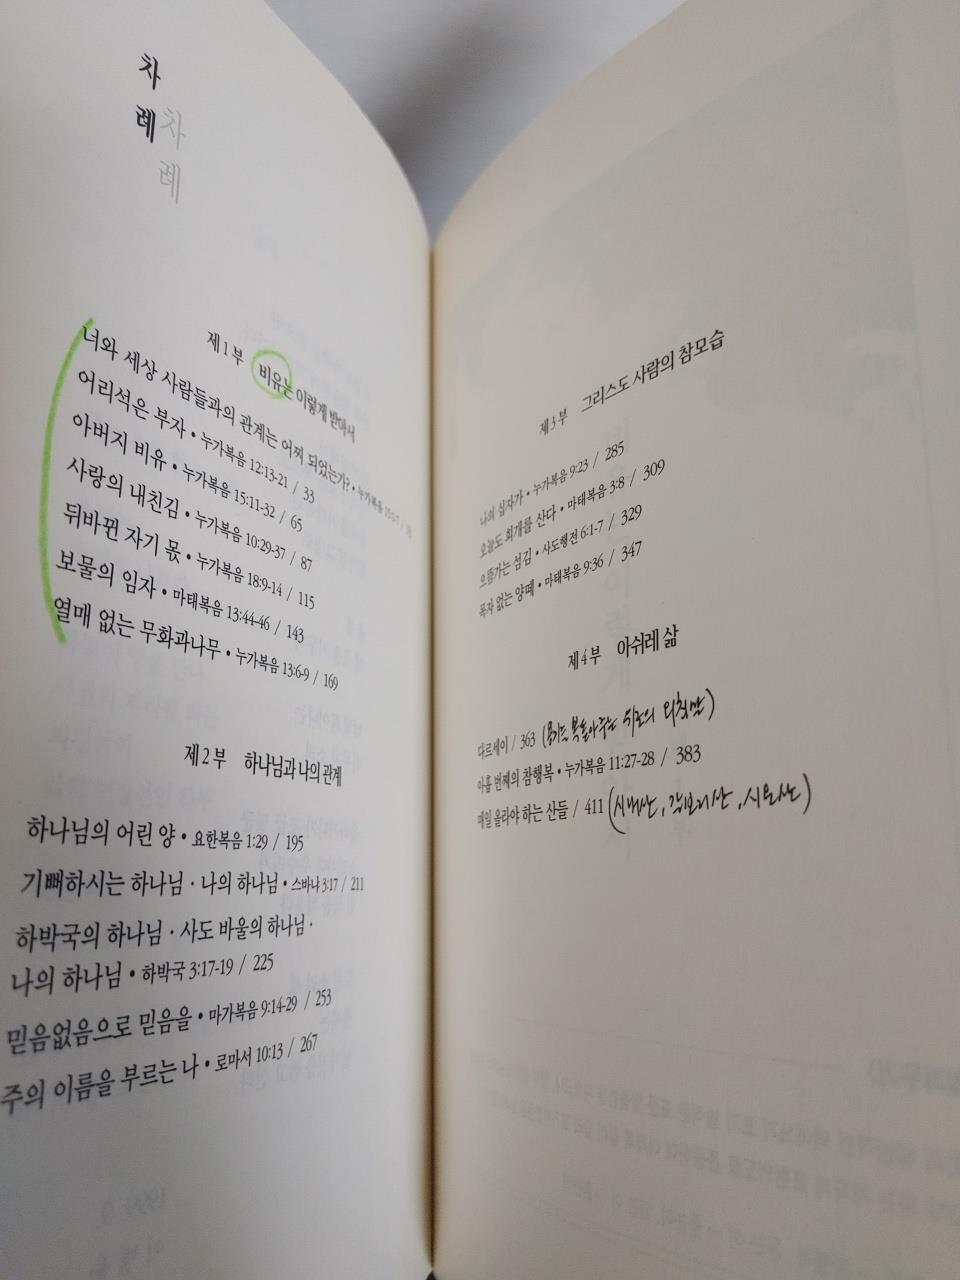 차
례
차
례
제1부 비유는 이렇게 받아서
너와 세상 사람들과의 관계는 어찌 되었는가? • 누가복음
어리석은 부자 • 누가복음 12:13-21 / 33
아버지 비유 • 누가복음 15:11-32 / 65
사랑의 내친김 • 누가복음 10:29-37 / 87
뒤바뀐 자기 몫 • 누가복음 18:9-14 / 115
보물의 임자 • 마태복음 13:44-46 / 143
열매 없는 무화과나무 • 누가복음 13:6-9 / 169
제2부 하나님과 나의 관계
하나님의 어린 양 • 요한복음 1:29 / 195
기뻐하시는 하나님 · 나의 하나님 • 스바냐 3:17 / 211
하박국의 하나님 · 사도 바울의 하나님 ·
나의 하나님 • 하박국 3:17-19 / 225
믿음없음으로 믿음을 • 마가복음 9:14-29 / 253
주의 이름을 부르는 나 • 로마서 10:13 / 267
제3부 그리스도 사람의 참모습
나의 십자가 • 누가복음 9:23 / 285
오늘도 회개를 산다 • 마태복음 3:8 / 309
으뜸가는 섬김 • 사도행전 6:1-7 / 329
목자 없는 양떼 • 마태복음 9:36 / 347
제4부 아쉬레 삶
다르세이 / 363 (몸기드 복돌아주는 외침)
아홉 번째의 참행복 • 누가복음 11:27-28 / 383
매일 올라야 하는 산들 / 411 (시내산, 갈보리산, 시온산)